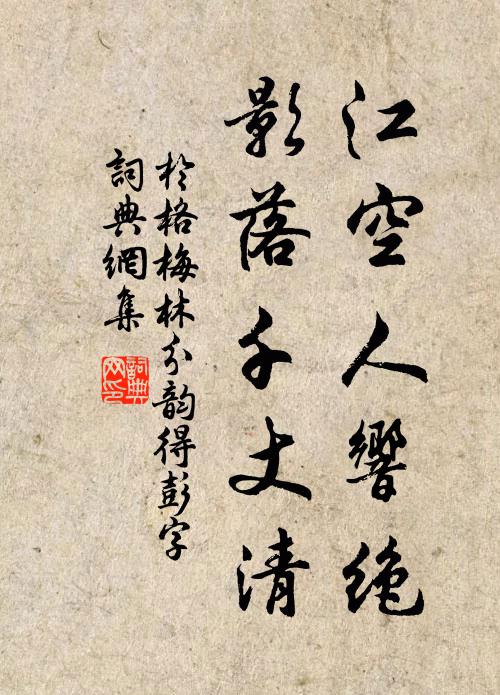 江空人響絶
影落千丈清
於格梅林分韵得彭字
詞典網集
詞典
网印